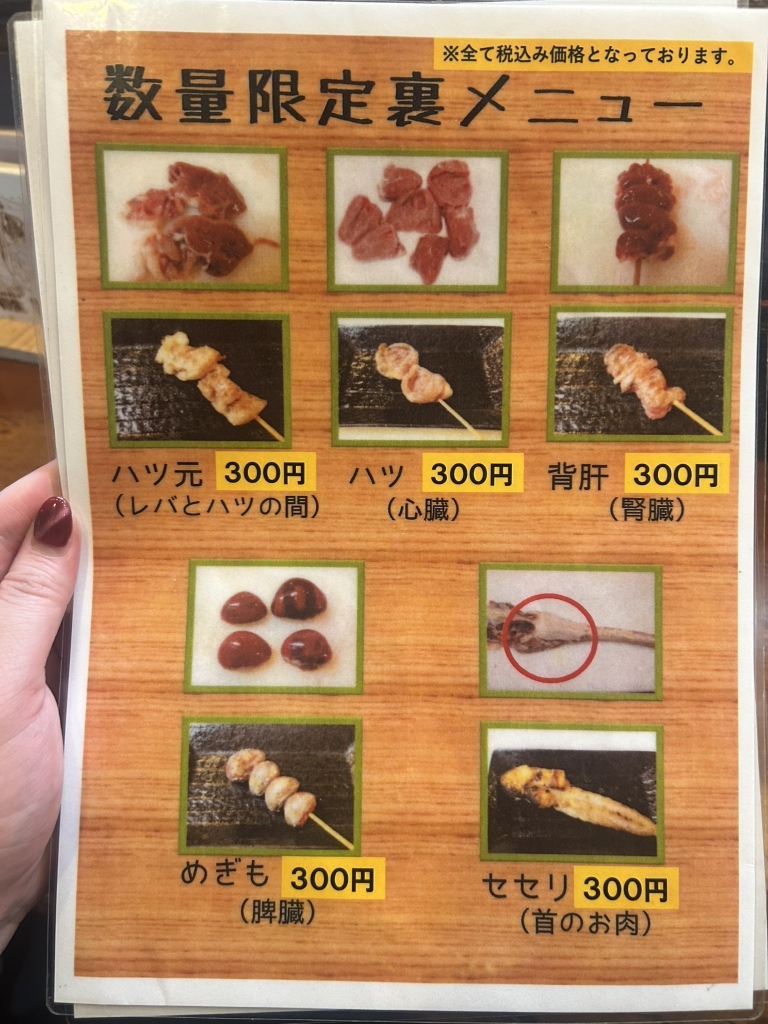 ※全て税込み価格となっております。
数量限定裏メニュー
ハツ元 300円
(レバとハツの間)
ハツ 300円
(心臓)
背肝 300円
(腎臓)
めぎも 300円
(脾臓)
セセリ 300円
(首のお肉)